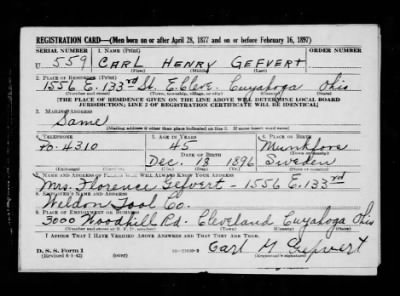 REGISTRATION CARD—(Men born on or after April 28, 1877 and on or before February 16, 1897)
SERIAL NUMBER 1. NAME (Print) ORDER NUMBER
U 559 CARL HENRY GEFVERT
(First) (Middle) (Last)
2. PLACE OF RESIDENCE (Print)
1556 E. 133rd St. E. Cleve. Cuyahoga Ohio
(Number and street) (Town, township, village, or city) (County) (State)
[THE PLACE OF RESIDENCE GIVEN ON THE LINE ABOVE WILL DETERMINE LOCAL BOARD
JURISDICTION; LINE 2 OF REGISTRATION CERTIFICATE WILL BE IDENTICAL]
3. MAILING ADDRESS
Same
[Mailing address if other than place indicated on line 2. If same insert word same]
4. TELEPHONE 5. AGE IN YEARS 6. PLACE OF BIRTH
PO. 4310 45 Munkfors
DATE OF BIRTH
Dec. 13 1896 Sweden
7. NAME AND ADDRESS OF PERSON WHO WILL ALWAYS KNOW YOUR ADDRESS
Mrs. Florence Gefvert - 1556 E. 133rd
8. EMPLOYER'S NAME AND ADDRESS
Weldon Tool Co.
9. PLACE OF EMPLOYMENT OR BUSINESS
3000 Woodhill Rd. Cleveland Cuyahoga Ohio
I AFFIRM THAT I HAVE VERIFIED ABOVE ANSWERS AND THAT THEY ARE TRUE.
D. S. S. Form 1 Carl H. Gefvert
(Revised 4-1-42) (over) (Registrant's signature)